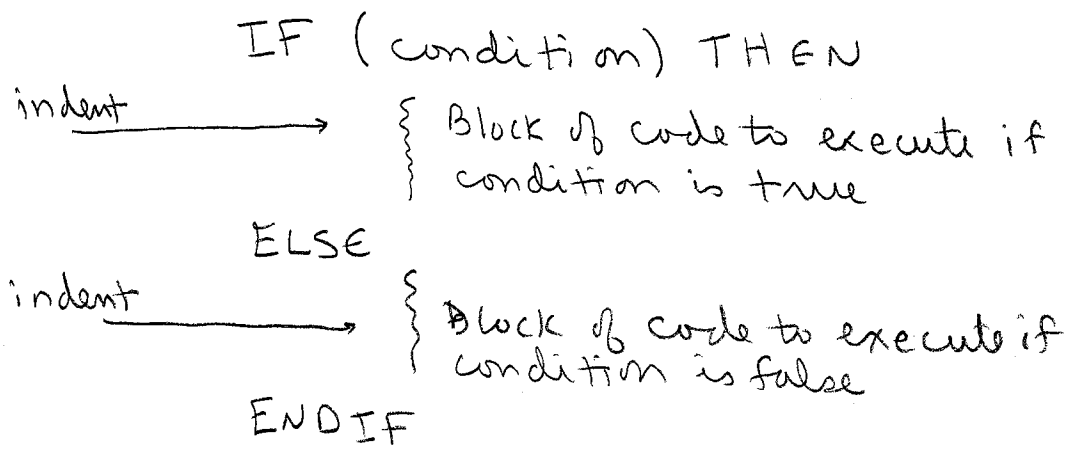 IF (condition) THEN
indent
Block of code to execute if
condition is true
ELSE
indent
Block of code to execute if
condition is false
ENDIF